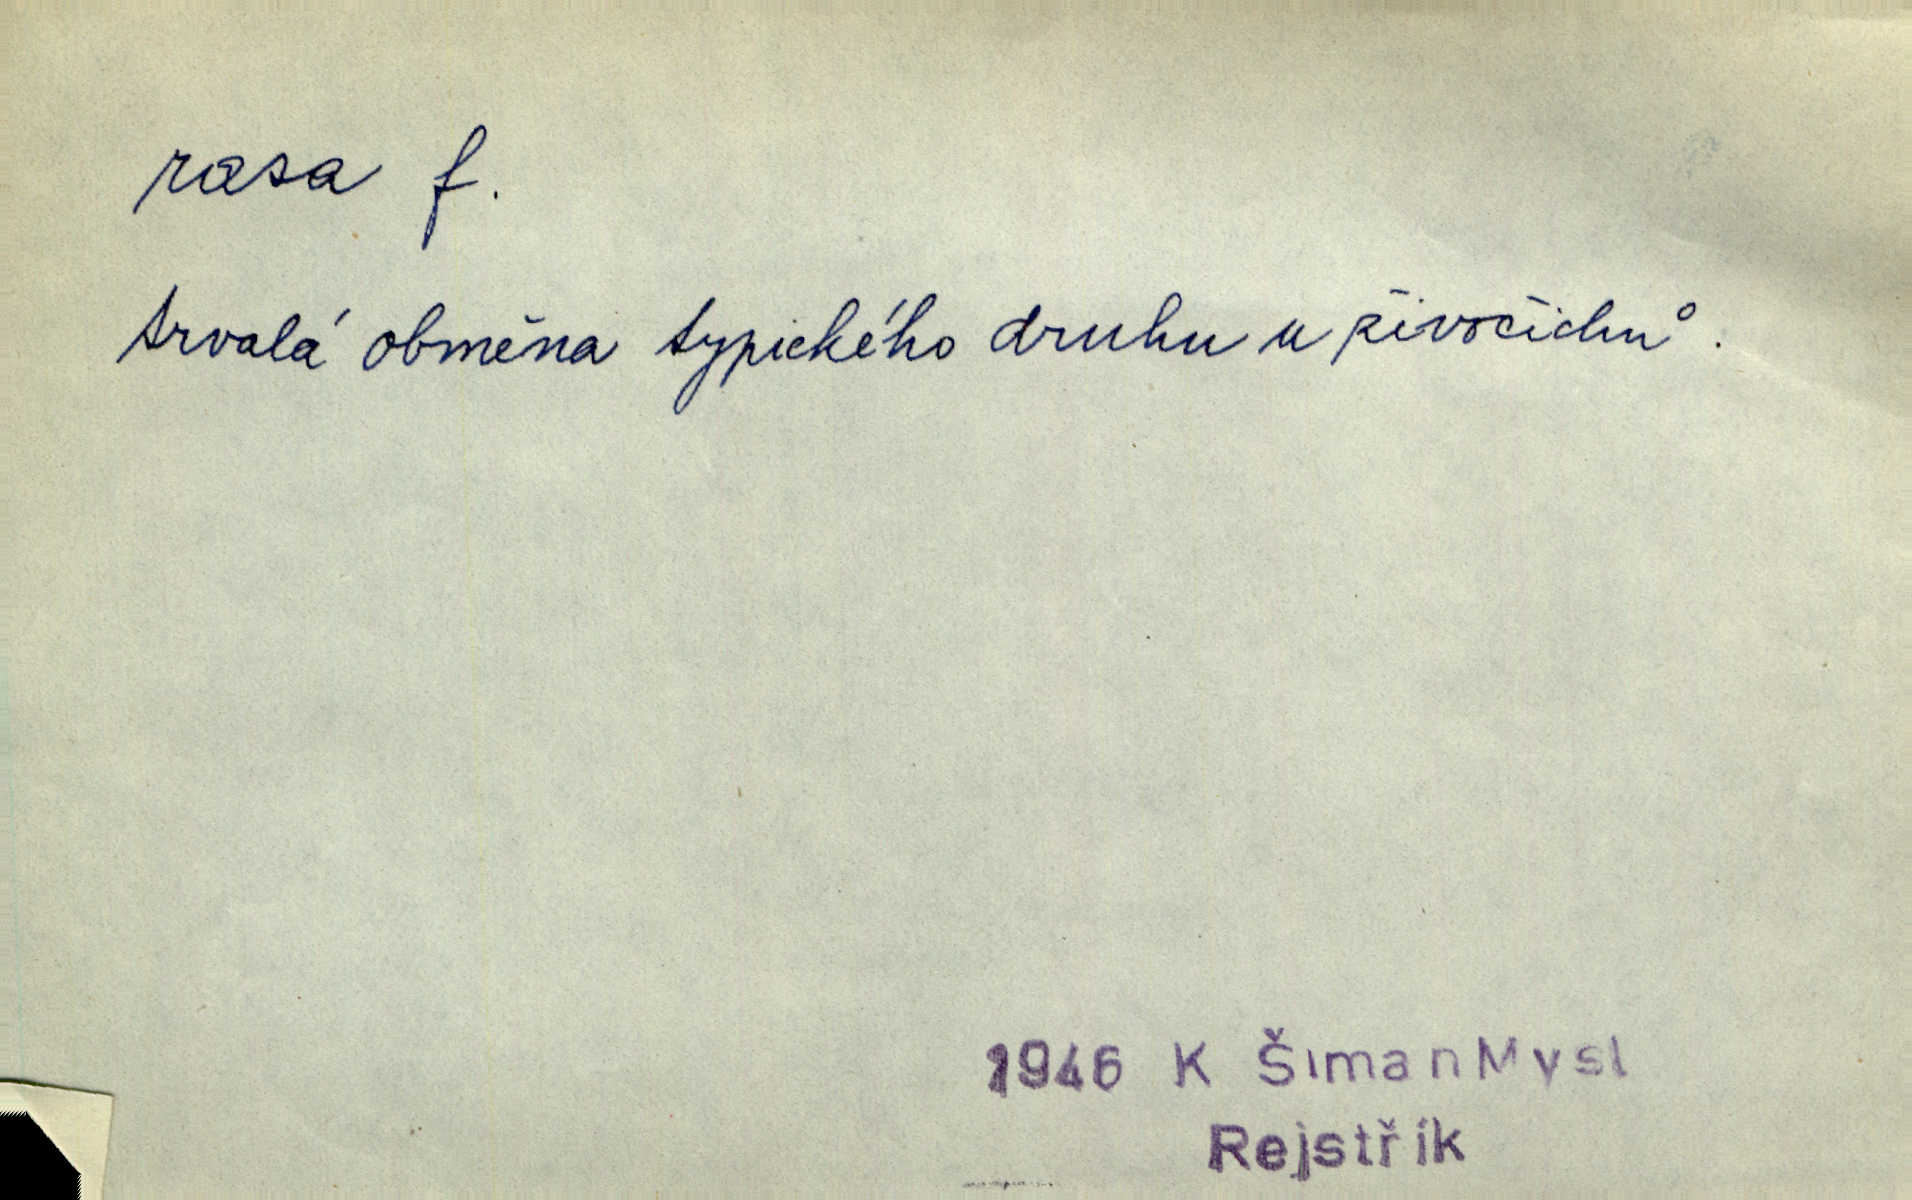 rasa f.
trvalá obměna typického druhu u živočichů.
1946 K ŠimanMysl
Rejstřík